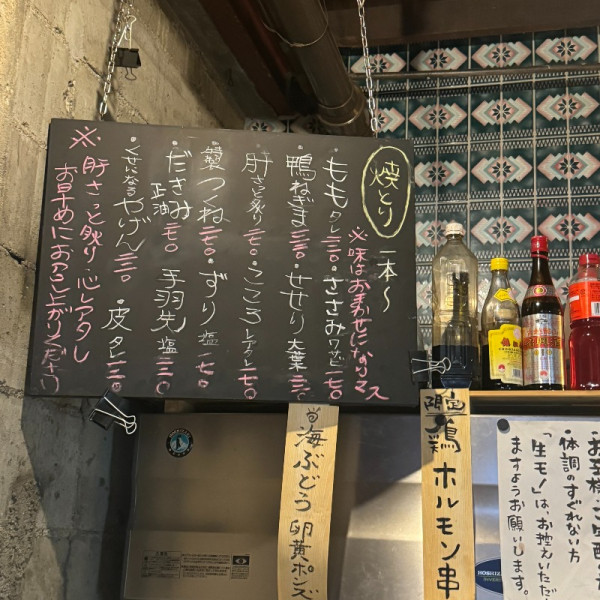 焼とり 一本〜
※味はおまかせになりマス
もも タレ 二三〇 ・ささみ ワサビ 一七〇
・鴨ねぎま 三三〇 ・せせり 大葉 二三〇
・肝 さっと炙り 一七〇 ・こころ レアタレ 一七〇
特製 つくね 二七〇 ・ずり 塩 一七〇
・だきみ 正油 一七〇 ・手羽先 塩 二三〇
・くせになる やげん 二二〇 ・皮 タレ 一二〇
※肝さっと炙り・心レアタレ
お早めにお召し上がりください
海ぶどう 卵黄ポンズ
鶏ホルモン串
体調のすぐれない方
「生モノ」は、お控えいただ
ますようお願いします。